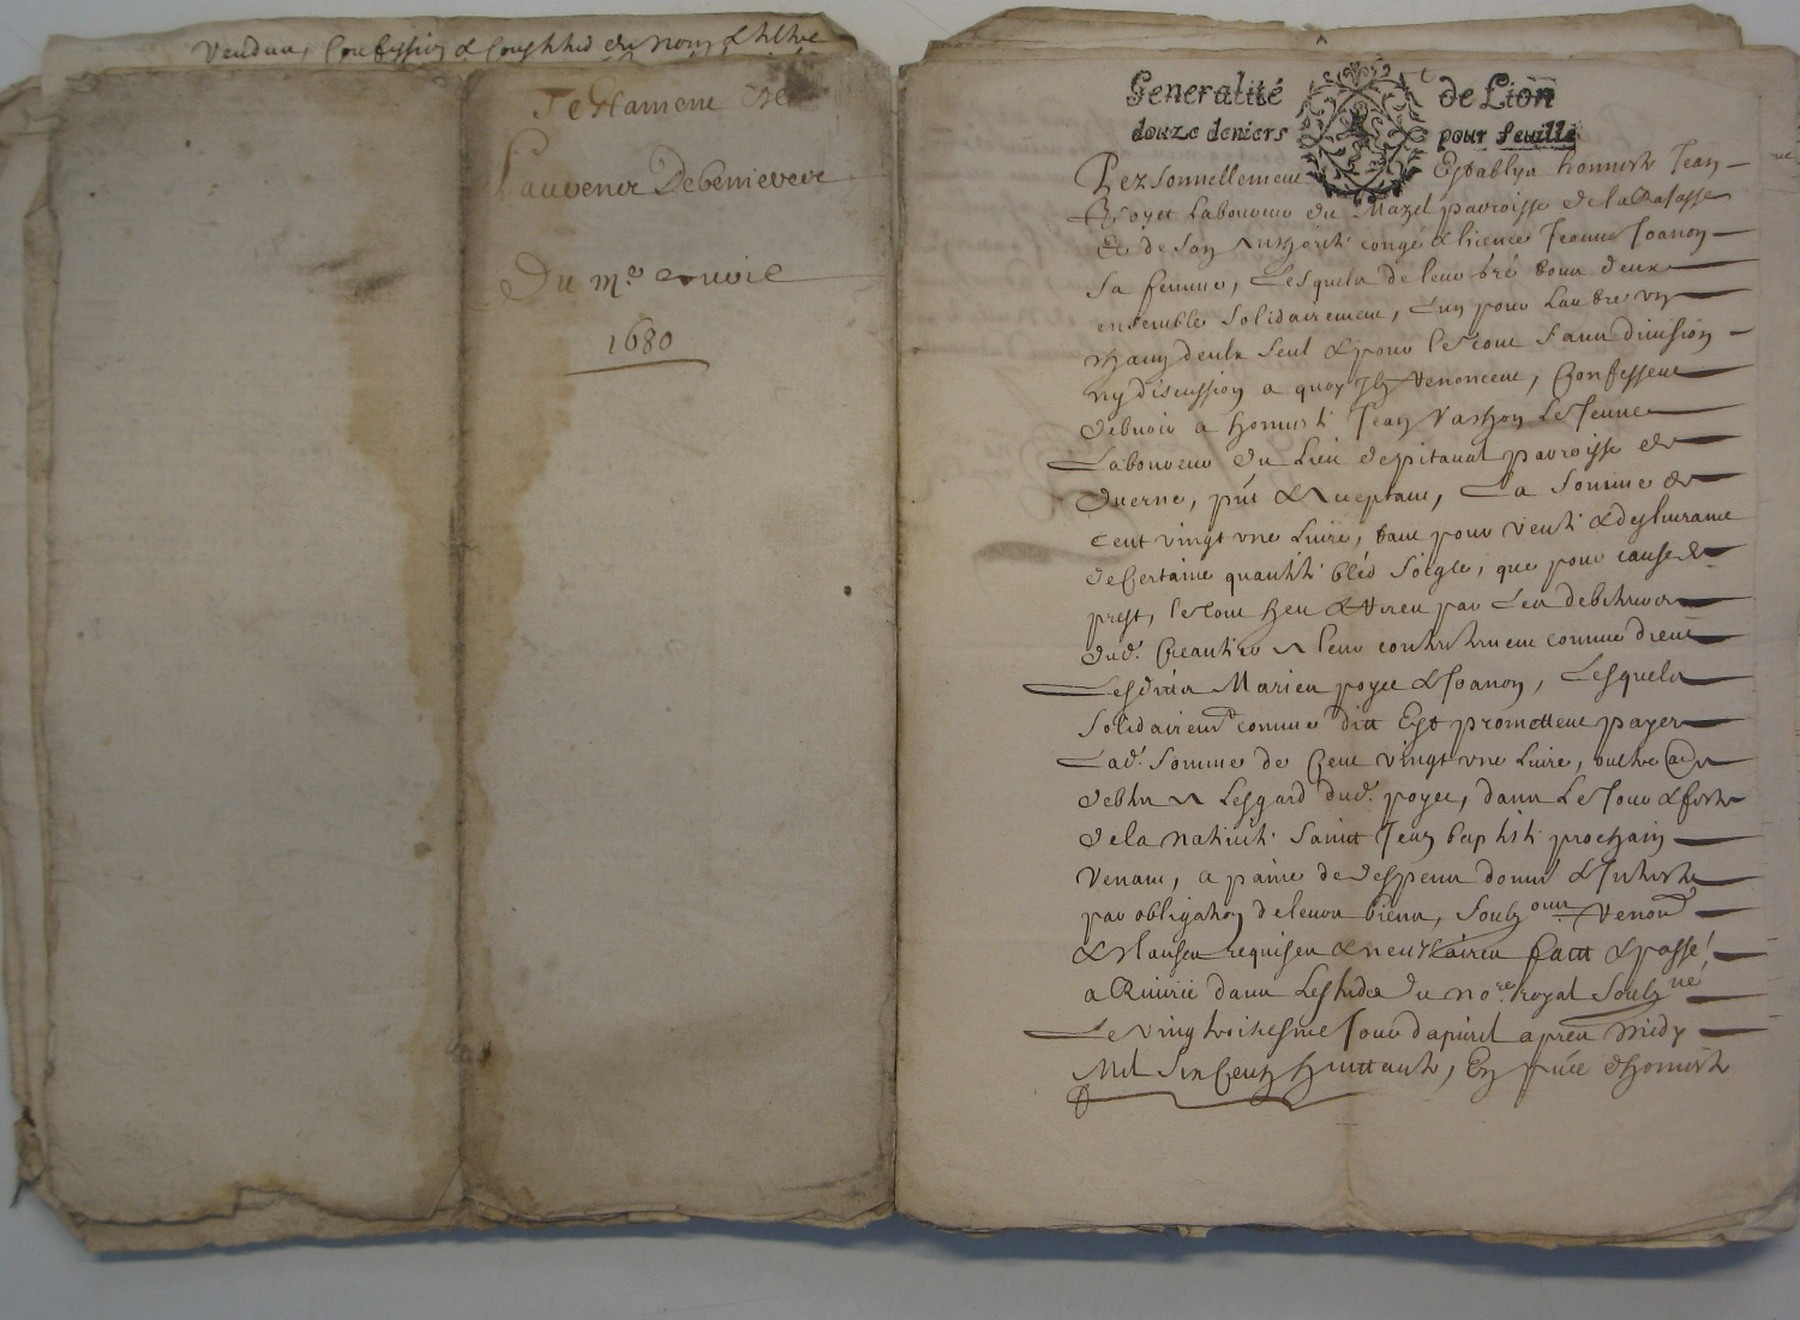 Testament de
Laurence Debenievere
Du m.e
1680
Generalité de Lion
douze deniers pour feuille
Personnellement Establys honneste Jean
Royet Laboureur du Mazel parroisse de la
Et de son authorité congé & licence Jeanne Joanon
sa femme, Lesquels de leur gré tous deux
ensemble solidairement, L'un pour Lautre un
chacun deulx seul & pour le tout sans division
ny discussion a quoy Ilz renoncent, Confessent
debvoir a honneste Jean Vachon Le Jeune
Laboureur du Lieu despitaval parroisse de
, pnt & acceptant, La somme de
cent vingt une Livre, tant pour vente & deslivrance
de Certaine quantité bled soigle, que pour cause de
prest, le tout heu & receu par Les debiteurs
dud. Creantier a leur contentement comme dient
Lesdits Mariez poyet & Joanon, Lesquels
solidairemt comme ditt Est promettent payer
Lad. somme de Cent vingt une Livre, oultre
debtes a Lesgard dud. poyet, dans Le Jour & feste
de la nativité saint Jean baptiste prochain
venant, a paine de despens doms & Interests
par obligation de leurs biens, soubz renon
& clauses requises & necessaires faitt & passé
a Riverie dans Lestude du no.re royal soubz.né
Le vingtroisiesme Jour dapvril apres midy
Mil six Centz huittante, En pnce dhonneste